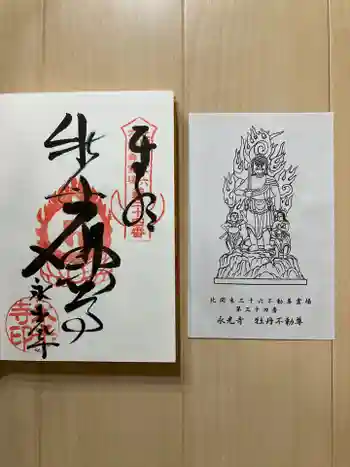 牡丹
不動尊
永光寺
北関東三十六不動尊霊場
第三十四番
永光寺　牡丹不動尊